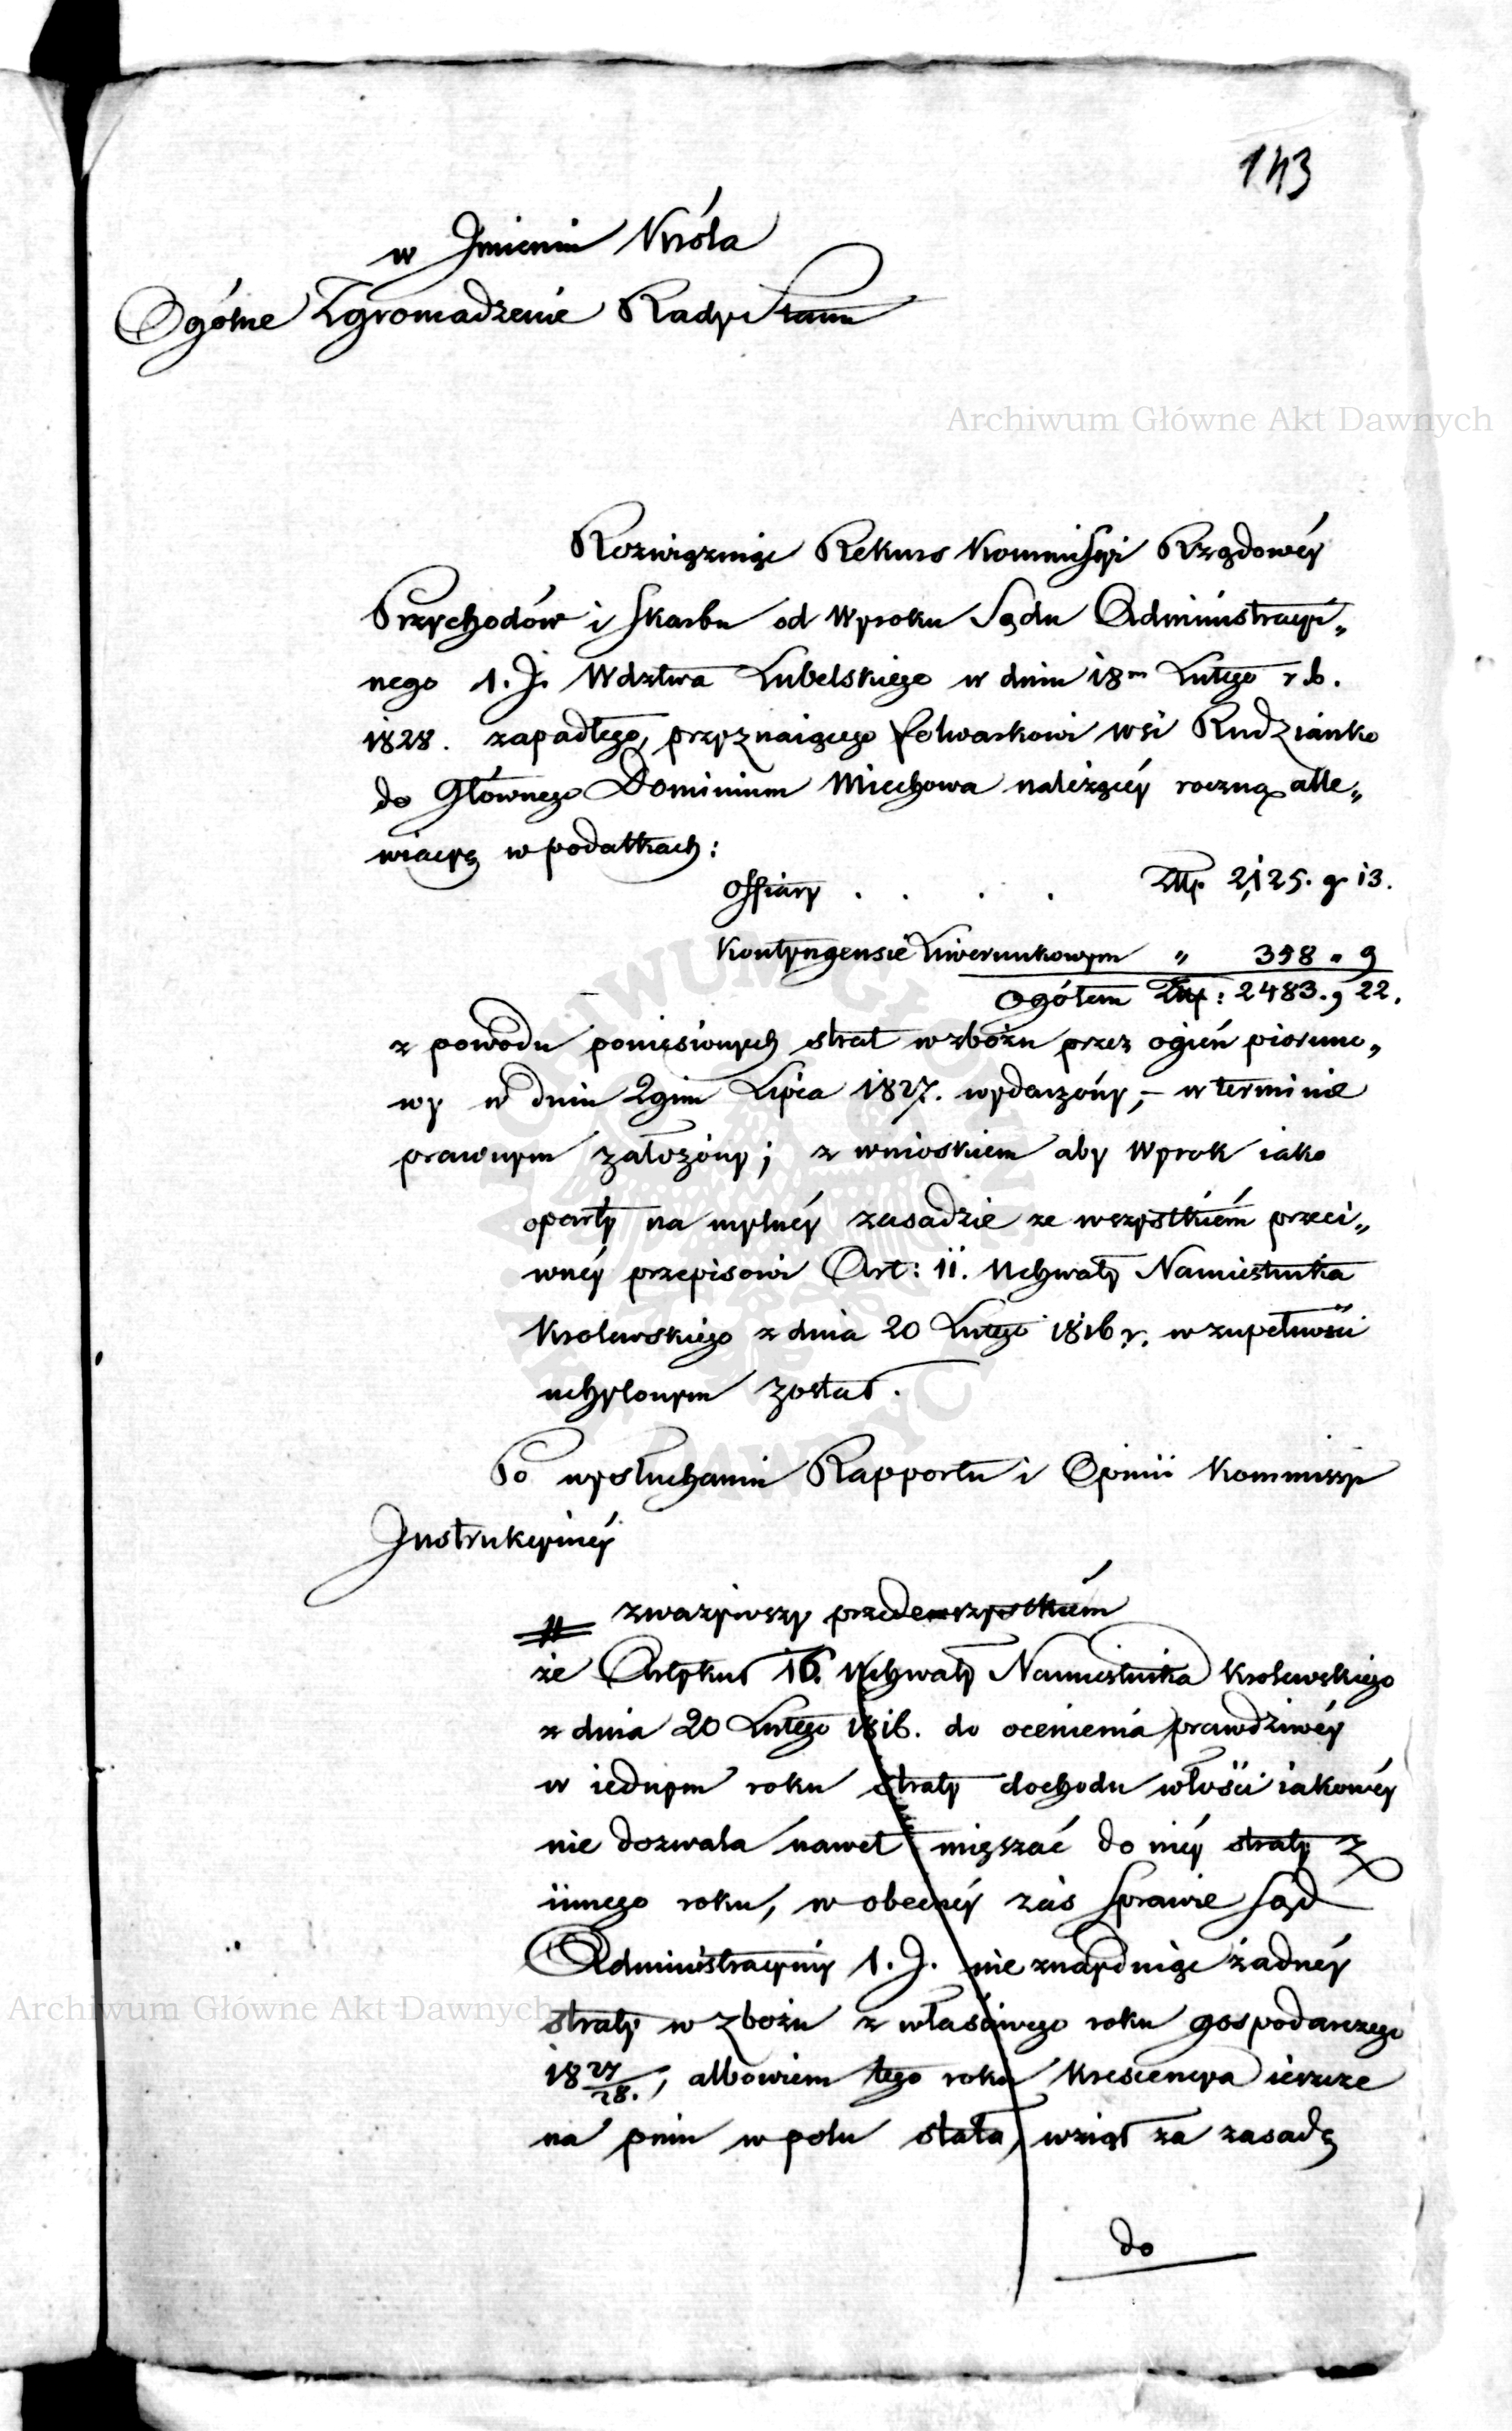 143
w Imieniu Króla
Ogólne Zgromadzenie Rady Stanu
Archiwum Główne Akt Dawnych
Rozwiązuiąc Rekurs Kommissyi Rządowéy
Przychodów i Skarbu od Wyroku Sądu Administracyi„
nego 1. J. Wdztwa Lubelskiego w dniu 18m Lutego r. b.
1828. zapadłego, przyznaiącego folwarkowi wsi Rudzianko
do Głównego Dominium Miechowa należącéy roczną alle„
wiacyą w podatkach:
Offiary . . . . Złp. 2,125. gr 13.
Kontyngensie Liwerunkowym „ 358 „ 9
Ogółem Złp: 2483. g 22.
z powodu poniesionych strat w zbożu przez ogień pioruno„
wy w dniu 2gim Lipca 1827. wydarzóny, – w terminie
prawnym założóny; z wnioskiem aby Wyrok iako
oparty na mylnéy zasadzie ze wszystkiém przeci„
wnéy przepisowi Art: 11. Uchwały Namiestnika
Krolewskiego z dnia 20 Lutego 1816 r. w zupełności
uchylonym został.
Po wysłuchaniu Rapportu i Opinii Kommissyi
Instrukcyinéy
# zważywszy przedewszystkiém
że Artykuł 16. Uchwały Namiestnika Krolewskiego
z dnia 20 Lutego 1816. do ocenienia prawdziwéy
w iednym roku straty dochodu włości iakowéy
nie dozwala nawet mięszać do niéy straty z
innego roku, w obecnéy zaś sprawie Sąd
Administracyiny 1. J. nie znayduiąc żadnéy
straty w zbożu z właściwego roku gospodarczego
1827/28., albowiem tego roku krescencya ieszcze
na pniu w polu stała, wziął za zasadę
do
Archiwum Główne Akt Dawnych